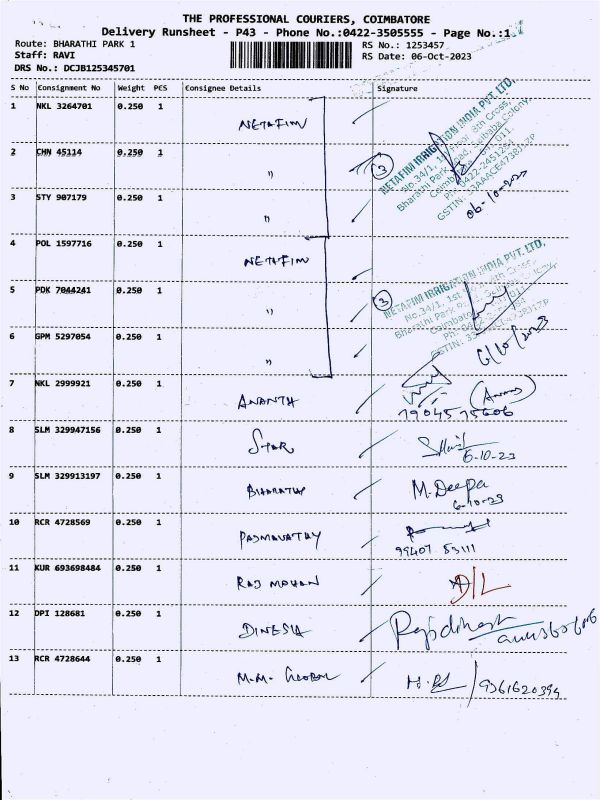 THE PROFESSIONAL COURIERS, COIMBATORE
Delivery Runsheet - P43 - Phone No.:0422-3505555 - Page No.:1
Route: BHARATHI PARK 1
Staff: RAVI
DRS No.: DCJB125345701
RS No.: 1253457
RS Date: 06-Oct-2023
S No Consignment No Weight PCS Consignee Details Signature
1 NKL 3264701 0.250 1 NETAFIM
2 CHN 45114 0.250 1 "
3 STY 907179 0.250 1 "
3
NETAFIM IRRIGATION INDIA PVT. LTD.
No.34/1, 1st Floor, 8th Cross,
Bharathi Park Road, Saibaba Colony,
06-10-2023
4 POL 1597716 0.250 1 NETAFIM
5 PDK 7044241 0.250 1 "
6 GPM 5297054 0.250 1 "
3
NETAFIM IRRIGATION INDIA PVT. LTD.
No.34/1, 1st
6/10/2023
7 NKL 2999921 0.250 1 ANANTH
8 SLM 329947156 0.250 1 STAR
6-10-23
9 SLM 329913197 0.250 1 BHARATHY M.Deepa
6-10-23
10 RCR 4728569 0.250 1 PADMAVATHY
99407 83111
11 KUR 693698484 0.250 1 RAJ MOHAN D/L
12 DPI 128681 0.250 1 DINESIA
13 RCR 4728644 0.250 1 M.M. GLOBAL 9361620394